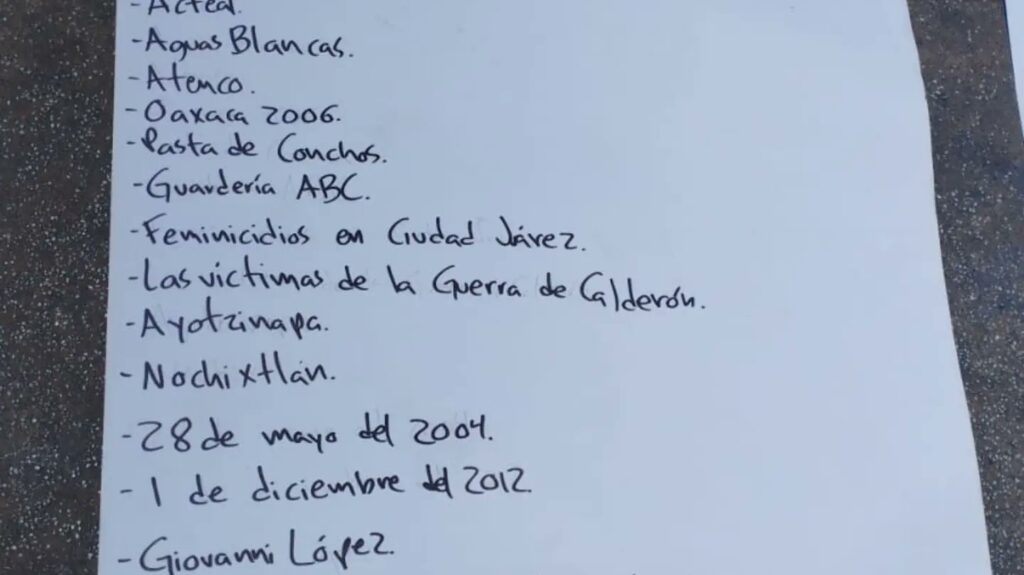 - Acteal.
- Aguas Blancas.
- Atenco.
- Oaxaca 2006.
- Pasta de Conchos.
- Guardería ABC.
- Feminicidios en Ciudad Júarez.
- Las víctimas de la Guerra de Calderón.
- Ayotzinapa.
- Nochixtlán.
- 28 de mayo del 2004.
- 1 de diciembre del 2012
- Giovanni López.